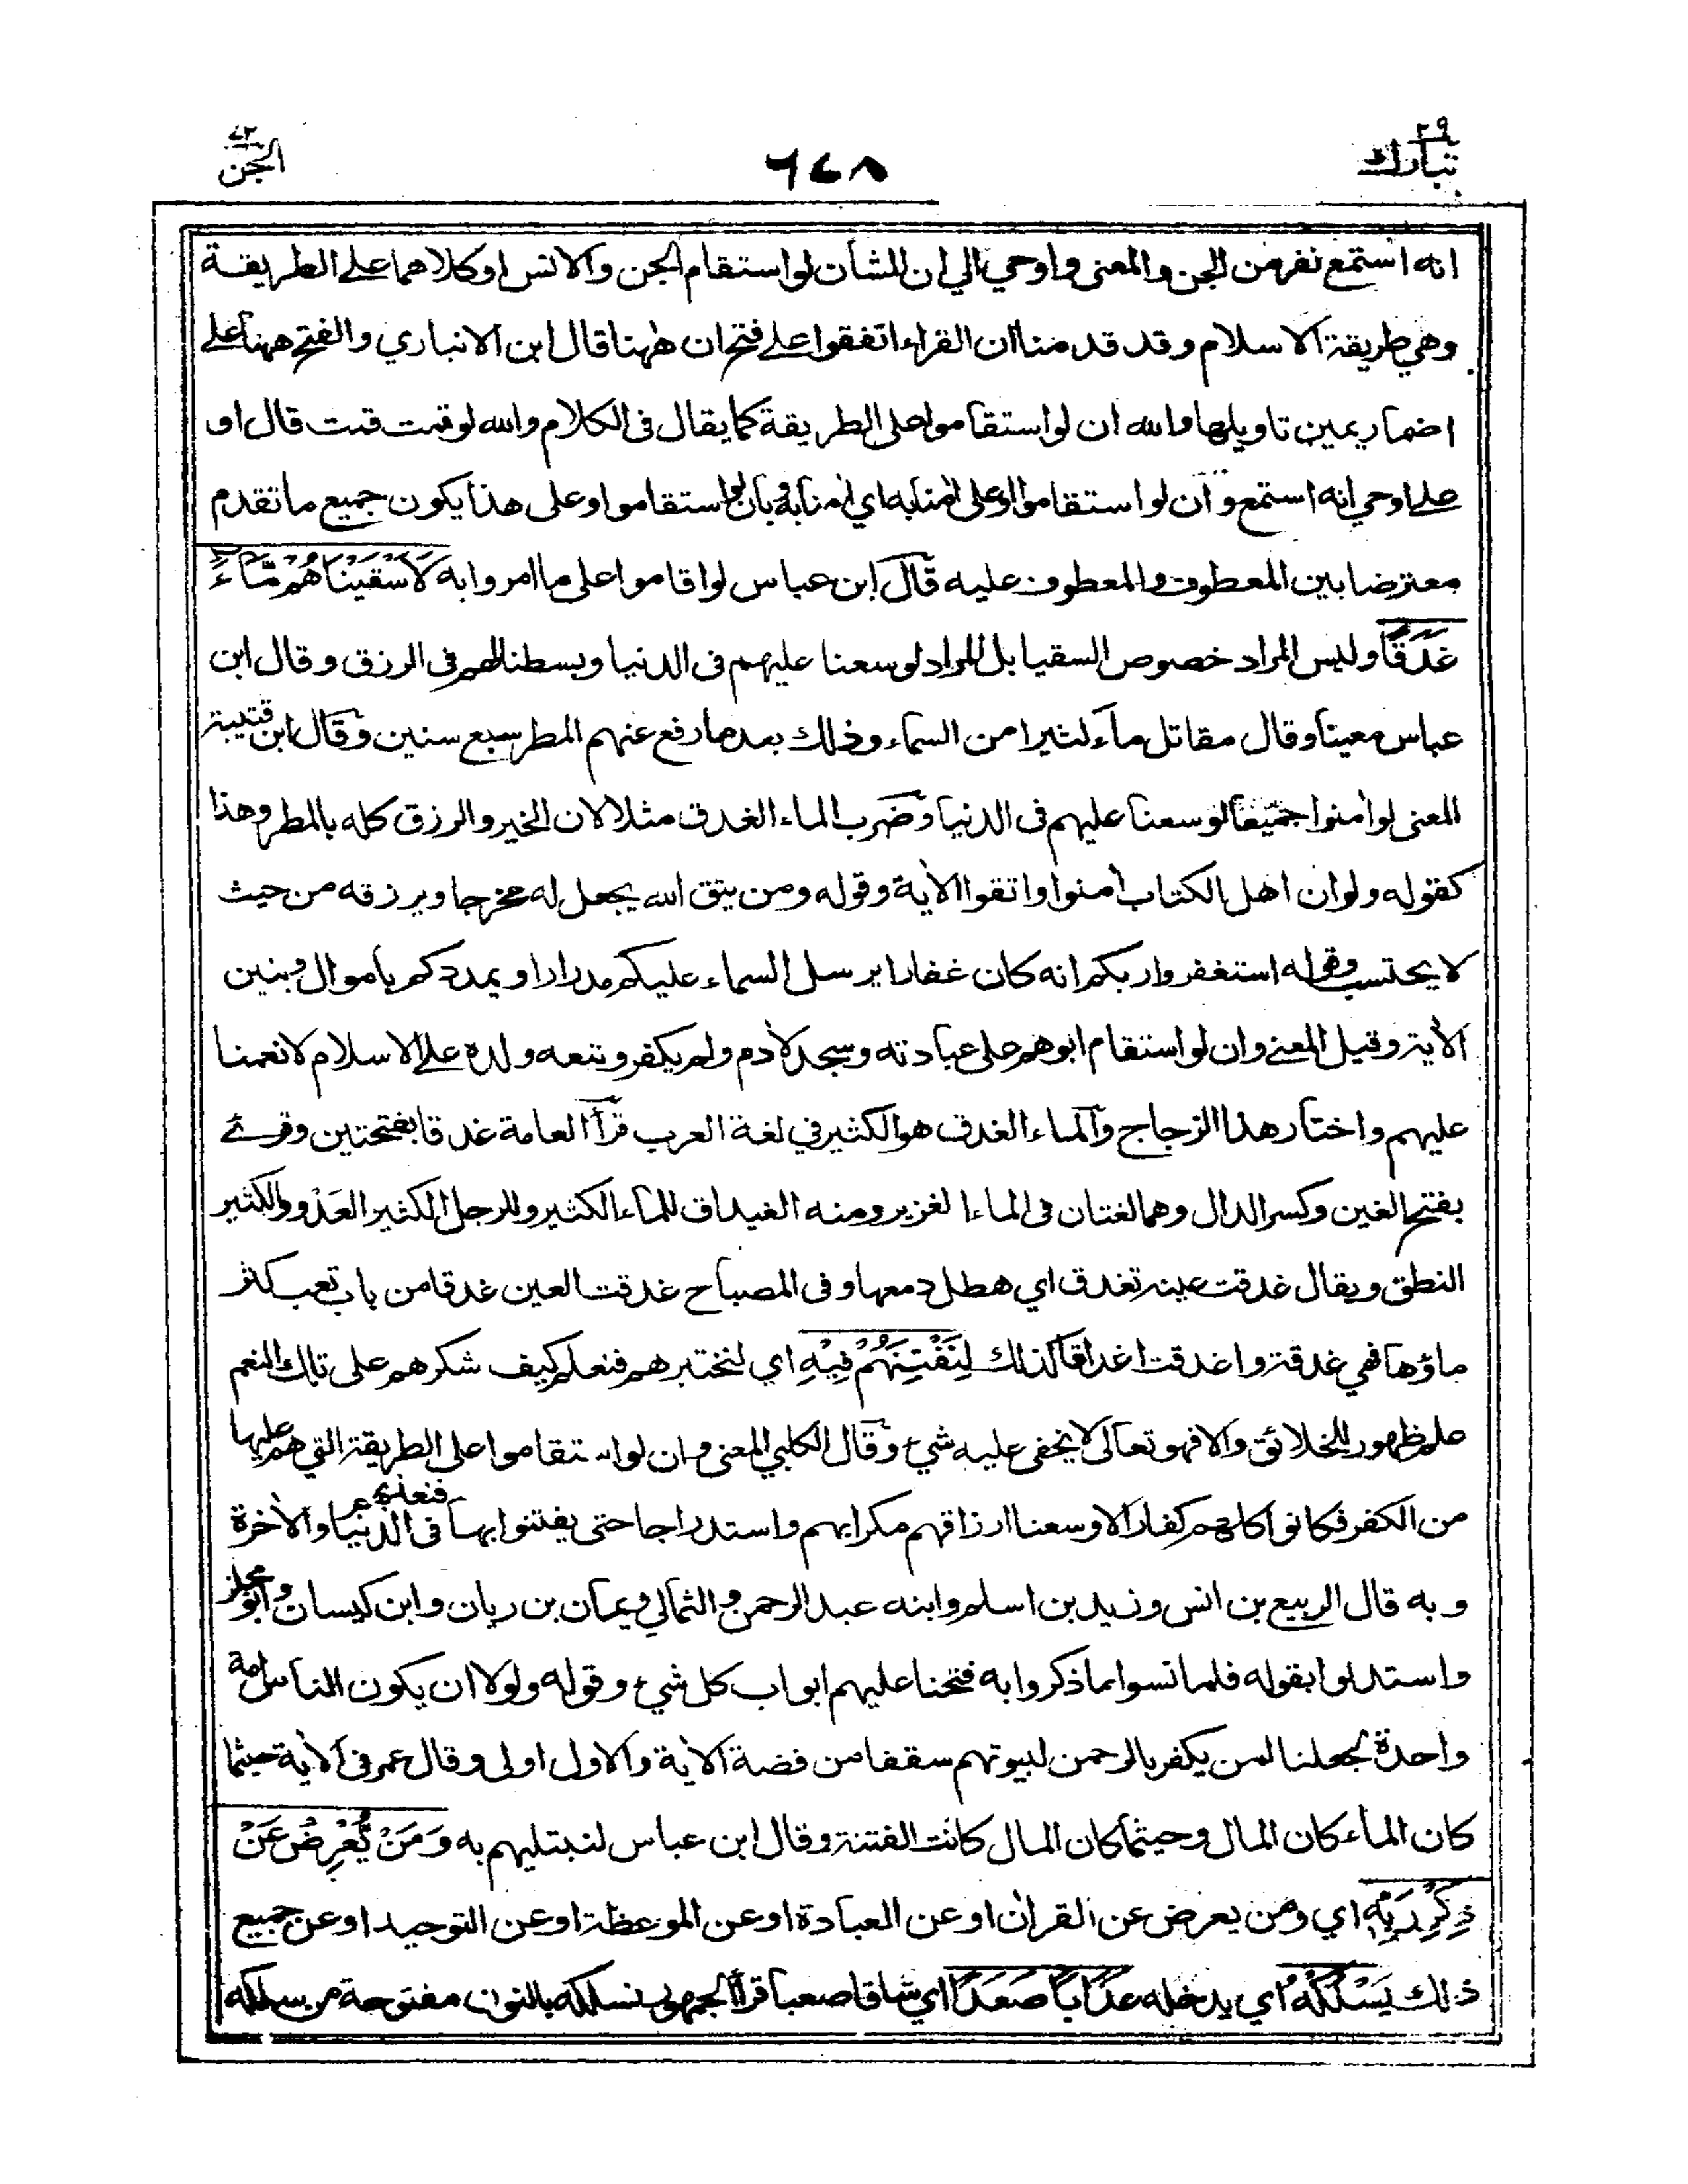 تبارك ٢٩
٦٤٨
الجن ٧٢
انه استمع نفر من الجن والمعنى واوحي الي ان الشأن لو استقام الجن والانس او كلاهما على الطريقة
وهي طريقة الاسلام وقد قدمنا ان القراء اتفقوا على فتح ان ههنا قال ابن الانباري والفتح ههنا على
اضمار يمين تاويلها والله ان لو استقاموا على الطريقة كما يقال فى الكلام والله لو قمت قمت قال او
على اوحي انه استمع وان لو استقاموا او على اٰمنا به اي اٰمنا به وبان لو استقاموا وعلى هذا يكون جميع ما تقدم
معترضا بين المعطوف والمعطوف عليه قال ابن عباس لو اقاموا على ما امروا به لَاَسْقَيْنَاهُمْ مَّآءً
غَدَقًا وليس المراد خصوص السقيا بل المراد لوسعنا عليهم فى الدنيا وبسطنا لهم فى الرزق وقال ابن
عباس معينا وقال مقاتل ماء كثيرا من السماء وذلك بعد ما رفع عنهم المطر سبع سنين وقال ابن قتيبة
المعنى لو اٰمنوا جميعا لوسعنا عليهم فى الدنيا وضرب الماء الغدق مثلا لان الخير والرزق كله بالمطر وهذا
كقوله ولو ان اهل الكتاب اٰمنوا واتقوا الاٰية وقوله ومن يتق الله يجعل له مخرجا ويرزقه من حيث
لا يحتسب وقوله استغفروا ربكم انه كان غفارا يرسل السماء عليكم مدرارا ويمددكم بأموال وبنين
الاٰية وقيل المعنى وان لو استقام ابوهم على عبادته وسجد لاٰدم ولم يكفر وتبعه ولده على الاسلام لانعمنا
عليهم واختار هذا الزجاج والماء الغدق هو الكثير في لغة العرب قرأ العامة غدقا بفتحتين وقرئ
بفتح الغين وكسر الدال وهما لغتان فى الماء الغزير ومنه الغيداق للماء الكثير وللرجل الكثير العَدْو والكثير
النطق ويقال غدقت عينه تغدق اي هطل دمعها وفى المصباح غدقت العين غدقا من باب تعب كثر
ماؤها فهي غدقة واغدقت اغداقا كذلك لِنَفْتِنَهُمْ فِيْهِ اي لنختبرهم فنعلم كيف شكرهم على تلك النعم
علم ظهور للخلائق والا فهو تعالى لا يخفى عليه شيء وقال الكلبي المعنى وان لو استقاموا على الطريقة التي هم عليها
من الكفر فكانوا كلهم كفارا لاوسعنا ارزاقهم مكرا بهم واستدراجا حتى يفتتنوا بها فنعذبهم فى الدنيا والاٰخرة
وبه قال الربيع بن انس وزيد بن اسلم وابنه عبد الرحمن والثمالي ويمان بن ريان وابن كيسان وابو مجلز
واستدلوا بقوله فلما نسوا ما ذكروا به فتحنا عليهم ابواب كل شيء وقوله ولولا ان يكون الناس امة
واحدة لجعلنا لمن يكفر بالرحمن لبيوتهم سقفا من فضة الاٰية والاول اولى وقال عمر فى الاٰية حيثما
كان الماء كان المال وحيثما كان المال كانت الفتنة وقال ابن عباس لنبتليهم به وَمَنْ يُّعْرِضْ عَنْ
ذِكْرِ رَبِّهٖ اي ومن يعرض عن القراٰن او عن العبادة او عن الموعظة او عن التوحيد او عن جميع
ذلك يَسْلُكْهُ اي يدخله عَذَابًا صَعَدًا اي شاقا صعبا قرأ الجمهور نسلكه بالنون مفتوحة من سلكه